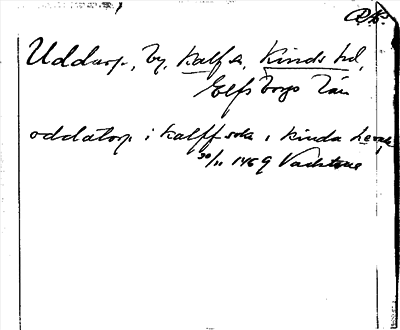 Uddarp, by, Kalf s., Kinds hd,
Elfsborgs län
oddatorp i kalff sokn i kinda
30/11 1469 Vadstena